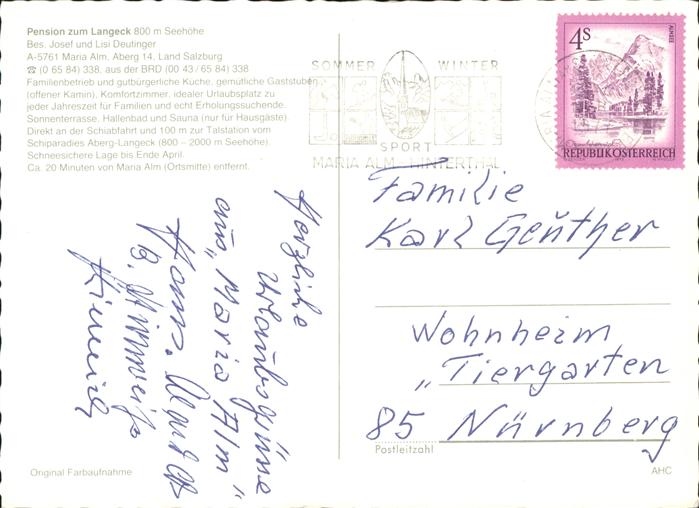 Pension zum Langeck 800 m Seehöhe
Bes. Josef und Lisi Deutinger
A-5761 Maria Alm, Aberg 14, Land Salzburg
☎ (0 65 84) 338, aus der BRD (00 43 / 65 84) 338
Familienbetrieb und gutbürgerliche Küche, gemütliche Gaststuben
(offener Kamin), Komfortzimmer, idealer Urlaubsplatz zu
jeder Jahreszeit für Familien und echt Erholungssuchende.
Sonnenterrasse. Hallenbad und Sauna (nur für Hausgäste).
Direkt an der Schiabfahrt und 100 m zur Talstation vom
Schiparadies Aberg-Langeck (800 – 2000 m Seehöhe).
Schneesichere Lage bis Ende April.
Ca. 20 Minuten von Maria Alm (Ortsmitte) entfernt.
SOMMER WINTER
SPORT
MARIA ALM - HINTERTHAL
4S
ALMSEE
REPUBLIK ÖSTERREICH
Familie
Karl Genther
Wohnheim
„Tiergarten
85 Nürnberg
Postleitzahl
Herzliche
Urlaubsgrüße
aus „Maria Alm"
Original Farbaufnahme
AHC